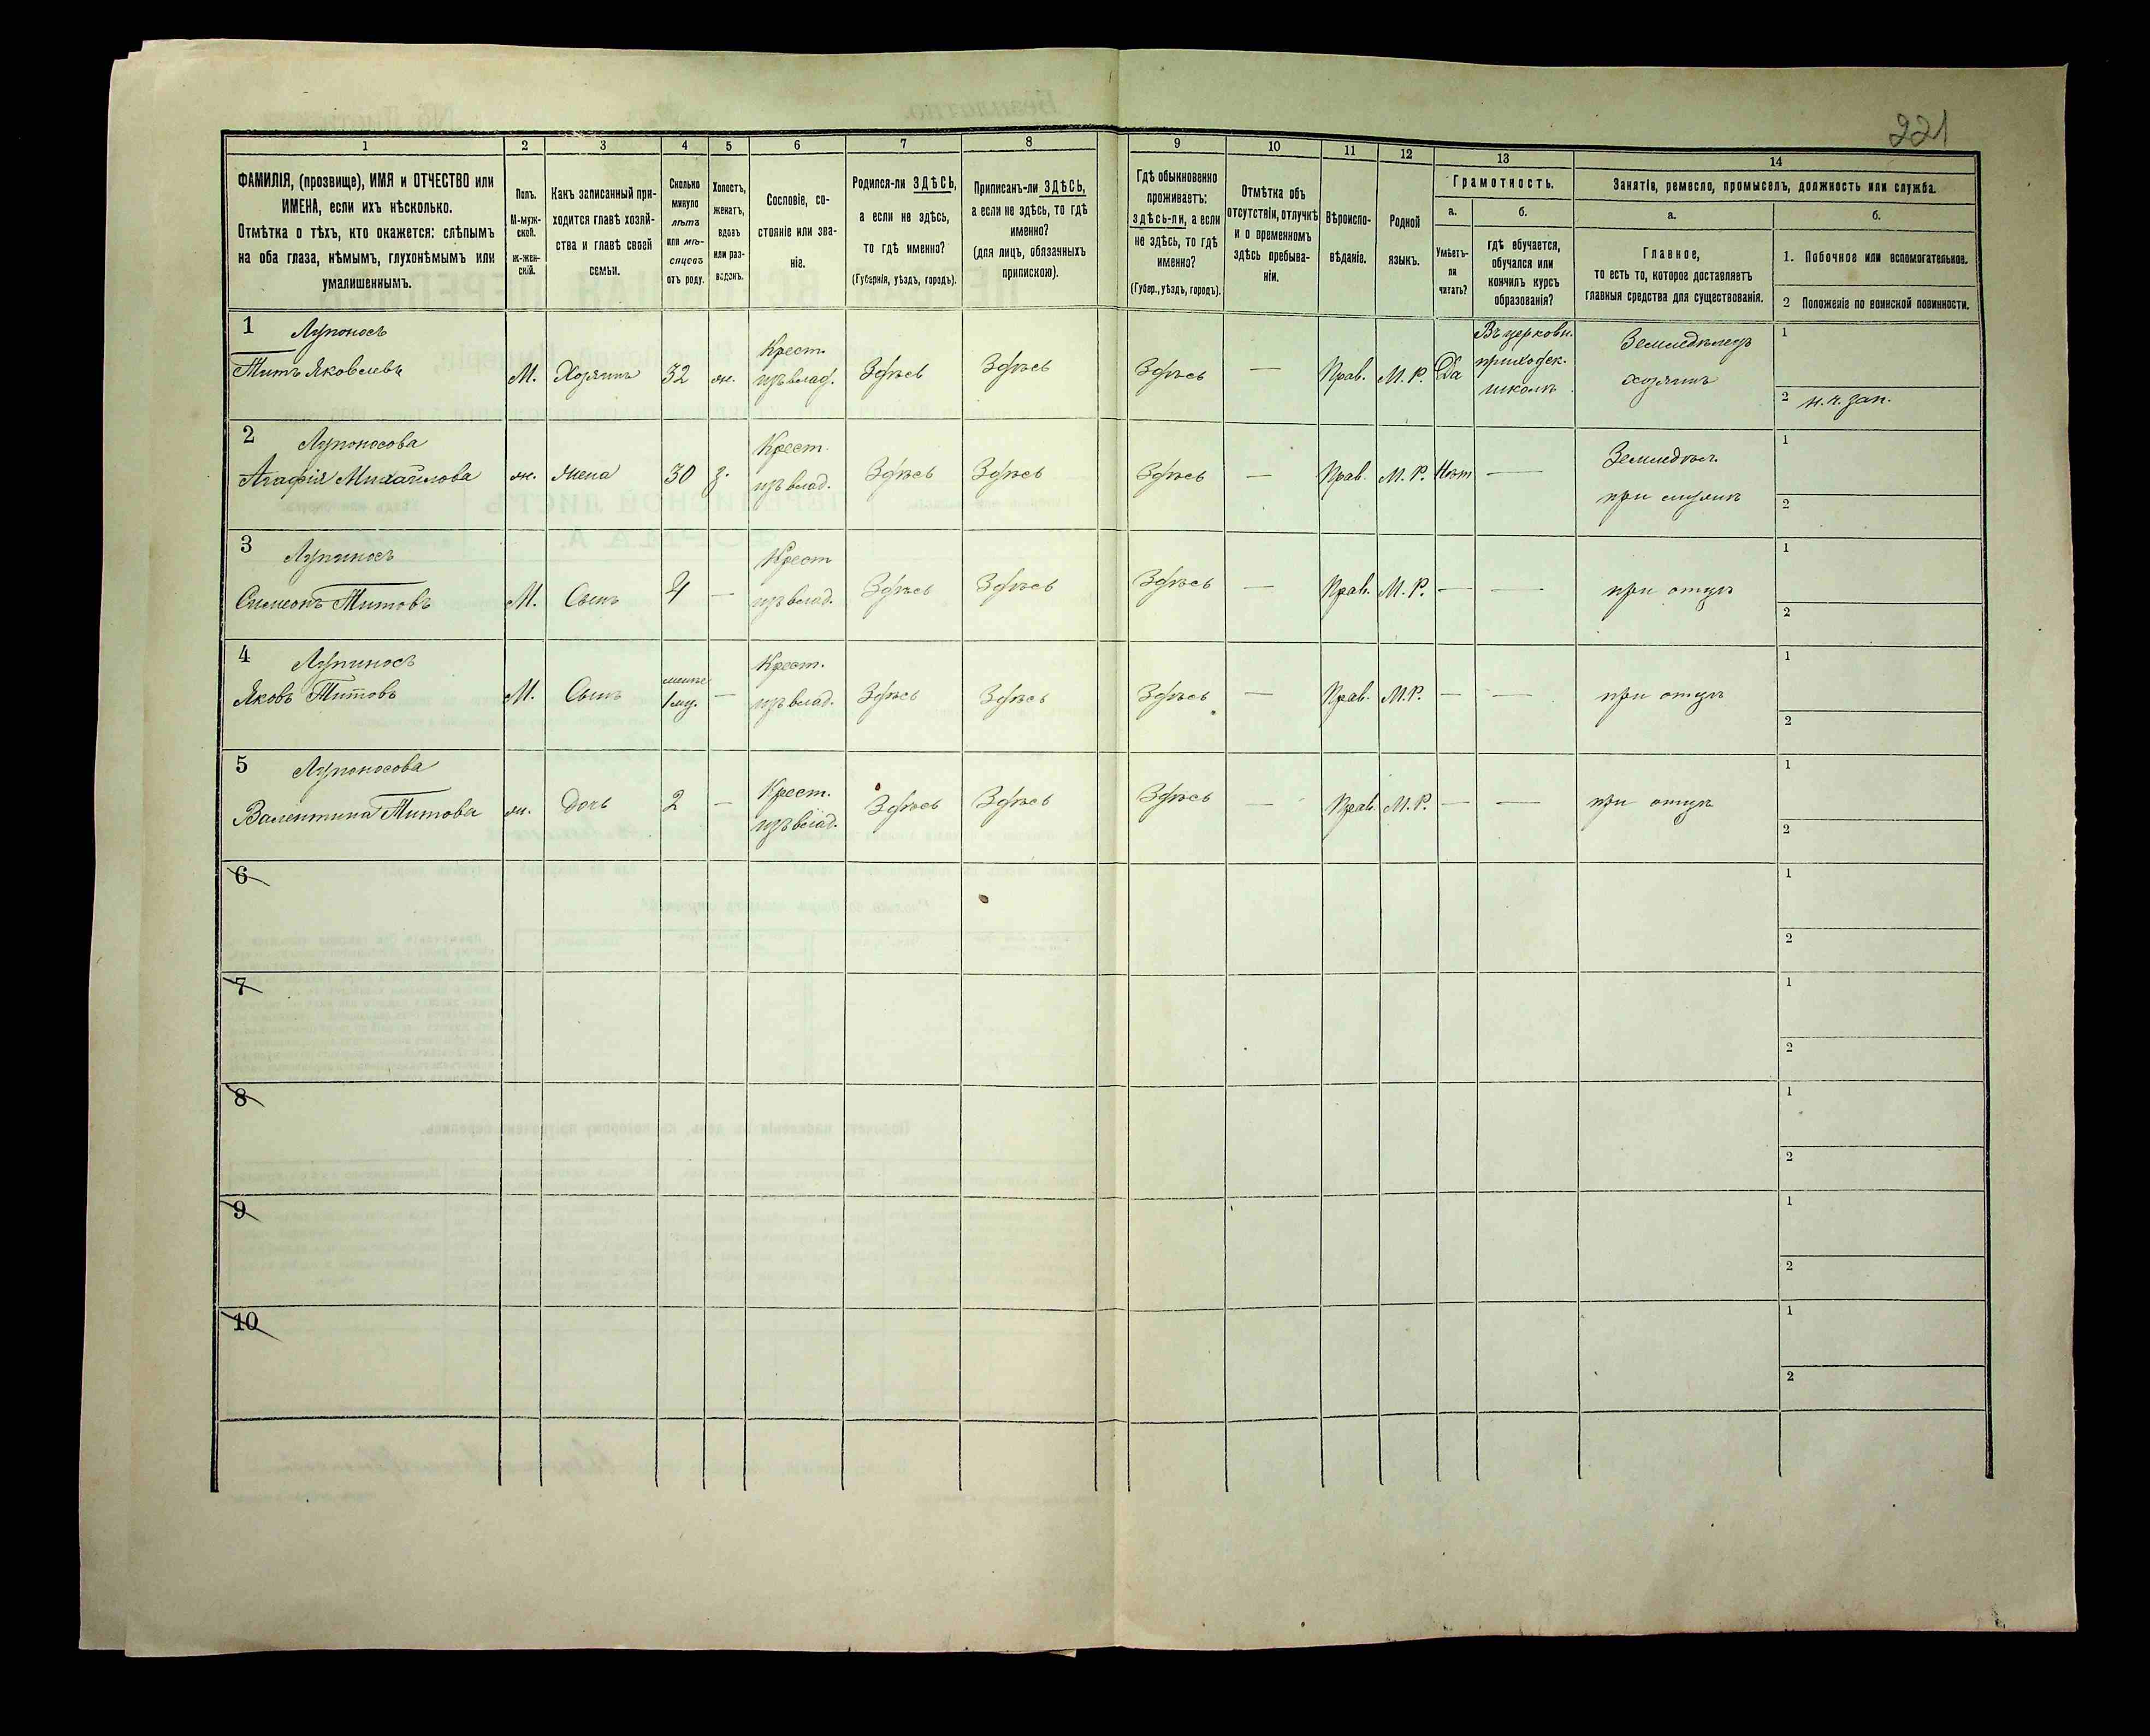 221
1
2
3
4
5
6
7
8
9
10
11
12
13
14
ФАМИЛІЯ, (прозвище), ИМЯ и ОТЧЕСТВО или
ИМЕНА, если ихъ нѣсколько.
Отмѣтка о тѣхъ, кто окажется: слѣпымъ
на оба глаза, нѣмымъ, глухонѣмымъ или
умалишеннымъ.
Полъ.
М-муж-
ской.
Ж-жен-
скій.
Какъ записанный при-
ходится главѣ хозяй-
ства и главѣ своей
семьи.
Сколько
минуло
лѣтъ
или мѣ-
сяцевъ
отъ роду.
Холостъ,
женатъ,
вдовъ
или раз-
веденъ.
Сословіе, со-
стояніе или зва-
ніе.
Родился-ли ЗДѢСЬ,
а если не здѣсь,
то гдѣ именно?
(Губернія, уѣздъ, городъ).
Приписанъ-ли ЗДѢСЬ,
а если не здѣсь, то гдѣ
именно?
(для лицъ, обязанныхъ
припискою).
Гдѣ обыкновенно
проживаетъ:
здѣсь-ли, а если
не здѣсь, то гдѣ
именно?
(Губер., уѣздъ, городъ).
Отмѣтка объ
отсутствіи, отлучкѣ
и о временномъ
здѣсь пребыва-
ніи.
Вѣроиспо-
вѣданіе.
Родной
языкъ.
Грамотность.
а.
Умѣетъ-
ли
читать?
б.
гдѣ обучается,
обучался или
кончилъ курсъ
образованія?
Занятіе, ремесло, промыселъ, должность или служба.
а.
Главное,
то есть то, которое доставляетъ
главныя средства для существованія.
б.
1. Побочное или вспомогательное.
2 Положеніе по воинской повинности.
1 Лупоносъ
Титъ Яковлевъ
М. Хозяинъ 32 ж.
Крест.
изъ влад.
Здѣсь Здѣсь Здѣсь — Прав. М. Р. Да
Въ церковн.
приходск.
школѣ
Земледѣлецъ
хозяинъ
1
2 н. ч. зап.
2 Лупоносова
Агафія Михайлова
ж. Жена 30 з.
Крест.
изъ влад.
Здѣсь Здѣсь Здѣсь — Прав. М. Р. Нѣт —
Земледѣл.
при
1
2
3 Лупиносъ
Симеонъ Титовъ
М. Сынъ 4 —
Крест
изъ влад.
Здѣсь Здѣсь Здѣсь — Прав. М. Р. — —
при отцѣ
1
2
4 Лупиносъ
Яковъ Титовъ
М. Сынъ
менѣе
1 —
Крест.
изъ влад.
Здѣсь Здѣсь Здѣсь — Прав. М. Р. — —
при отцѣ
1
2
5 Лупоносова
Валентина Титова
ж. Дочь 2 —
Крест.
изъ влад.
Здѣсь Здѣсь Здѣсь — Прав. М. Р. — —
при отцѣ
1
2
6
1
2
7
1
2
8
1
2
9
1
2
10
1
2